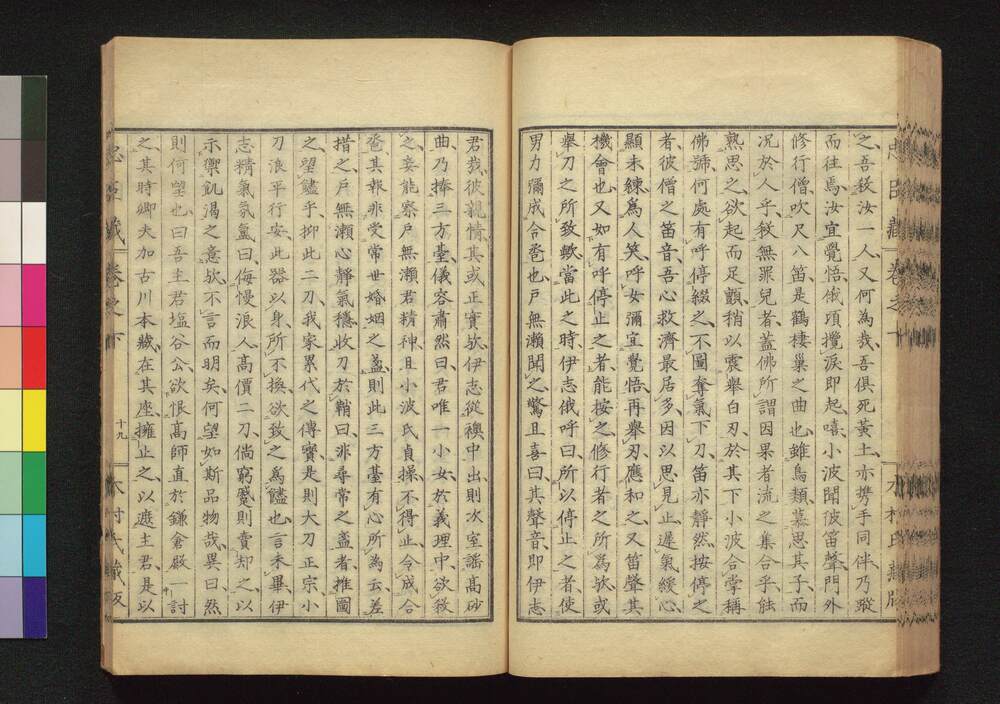 之吾殺汝一人又何為哉吾俱死黃土亦携手同伴乃蹤
而往焉汝宜覺悟俄頃攬淚即起嘻小波聞彼笛聲門外
修行僧吹尺八笛是鶴棲巢之曲也雖鳥類慕思其子而
況於人乎殺無罪兒者蓋佛所謂因果者流之集合乎能
熟思之欲起而足顫稍以震舉白刃於其下小波合掌稱
佛號何處有呼停綴之不圖奪氣下刀笛亦靜然按停之
者彼僧之笛音吾心救濟最居多因以思見止遲氣緩心
顯未練為人笑呼女彌宜覺悟再舉刃應和之又笛聲其
機會也又如有呼停止之者能按之修行者之所為欤或
舉刀之所致欤當此之時伊志俄呼曰所以停止之者使
男力彌成合卺也戸無瀬聞之驚且喜曰其聲音即伊志
君哉彼親情其或正實欤伊志從襖中出則次室謡高砂
曲乃捧三方臺儀容肅然曰君唯一小女於義理中欲殺
之妾能察戸無瀬君精神且小波氏貞操不得止令成合
卺其報非受常世婚姻之盃則此三方臺有心所為云差
措之戸無瀬心靜氣穩收刀於鞘曰非尋常之盞者推圖
之望饐乎抑此二刀我家累代之傳寶是則大刀正宗小
刀浪平行安此器以身所不換欲致之為饐也言未畢伊
志精氣氛氳曰侮慢浪人高價二刀倘窮蹙則賣却之以
示禦飢渴之意欤不言而明矣何望如斯品物哉異曰然
則何望也曰吾主君塩谷公欲恨高師直於鎌倉殿一討
之其時卿夫加古川本藏在其座擁止之以遮主君是以
忠臣藏 卷之下
十九
木村氏藏版